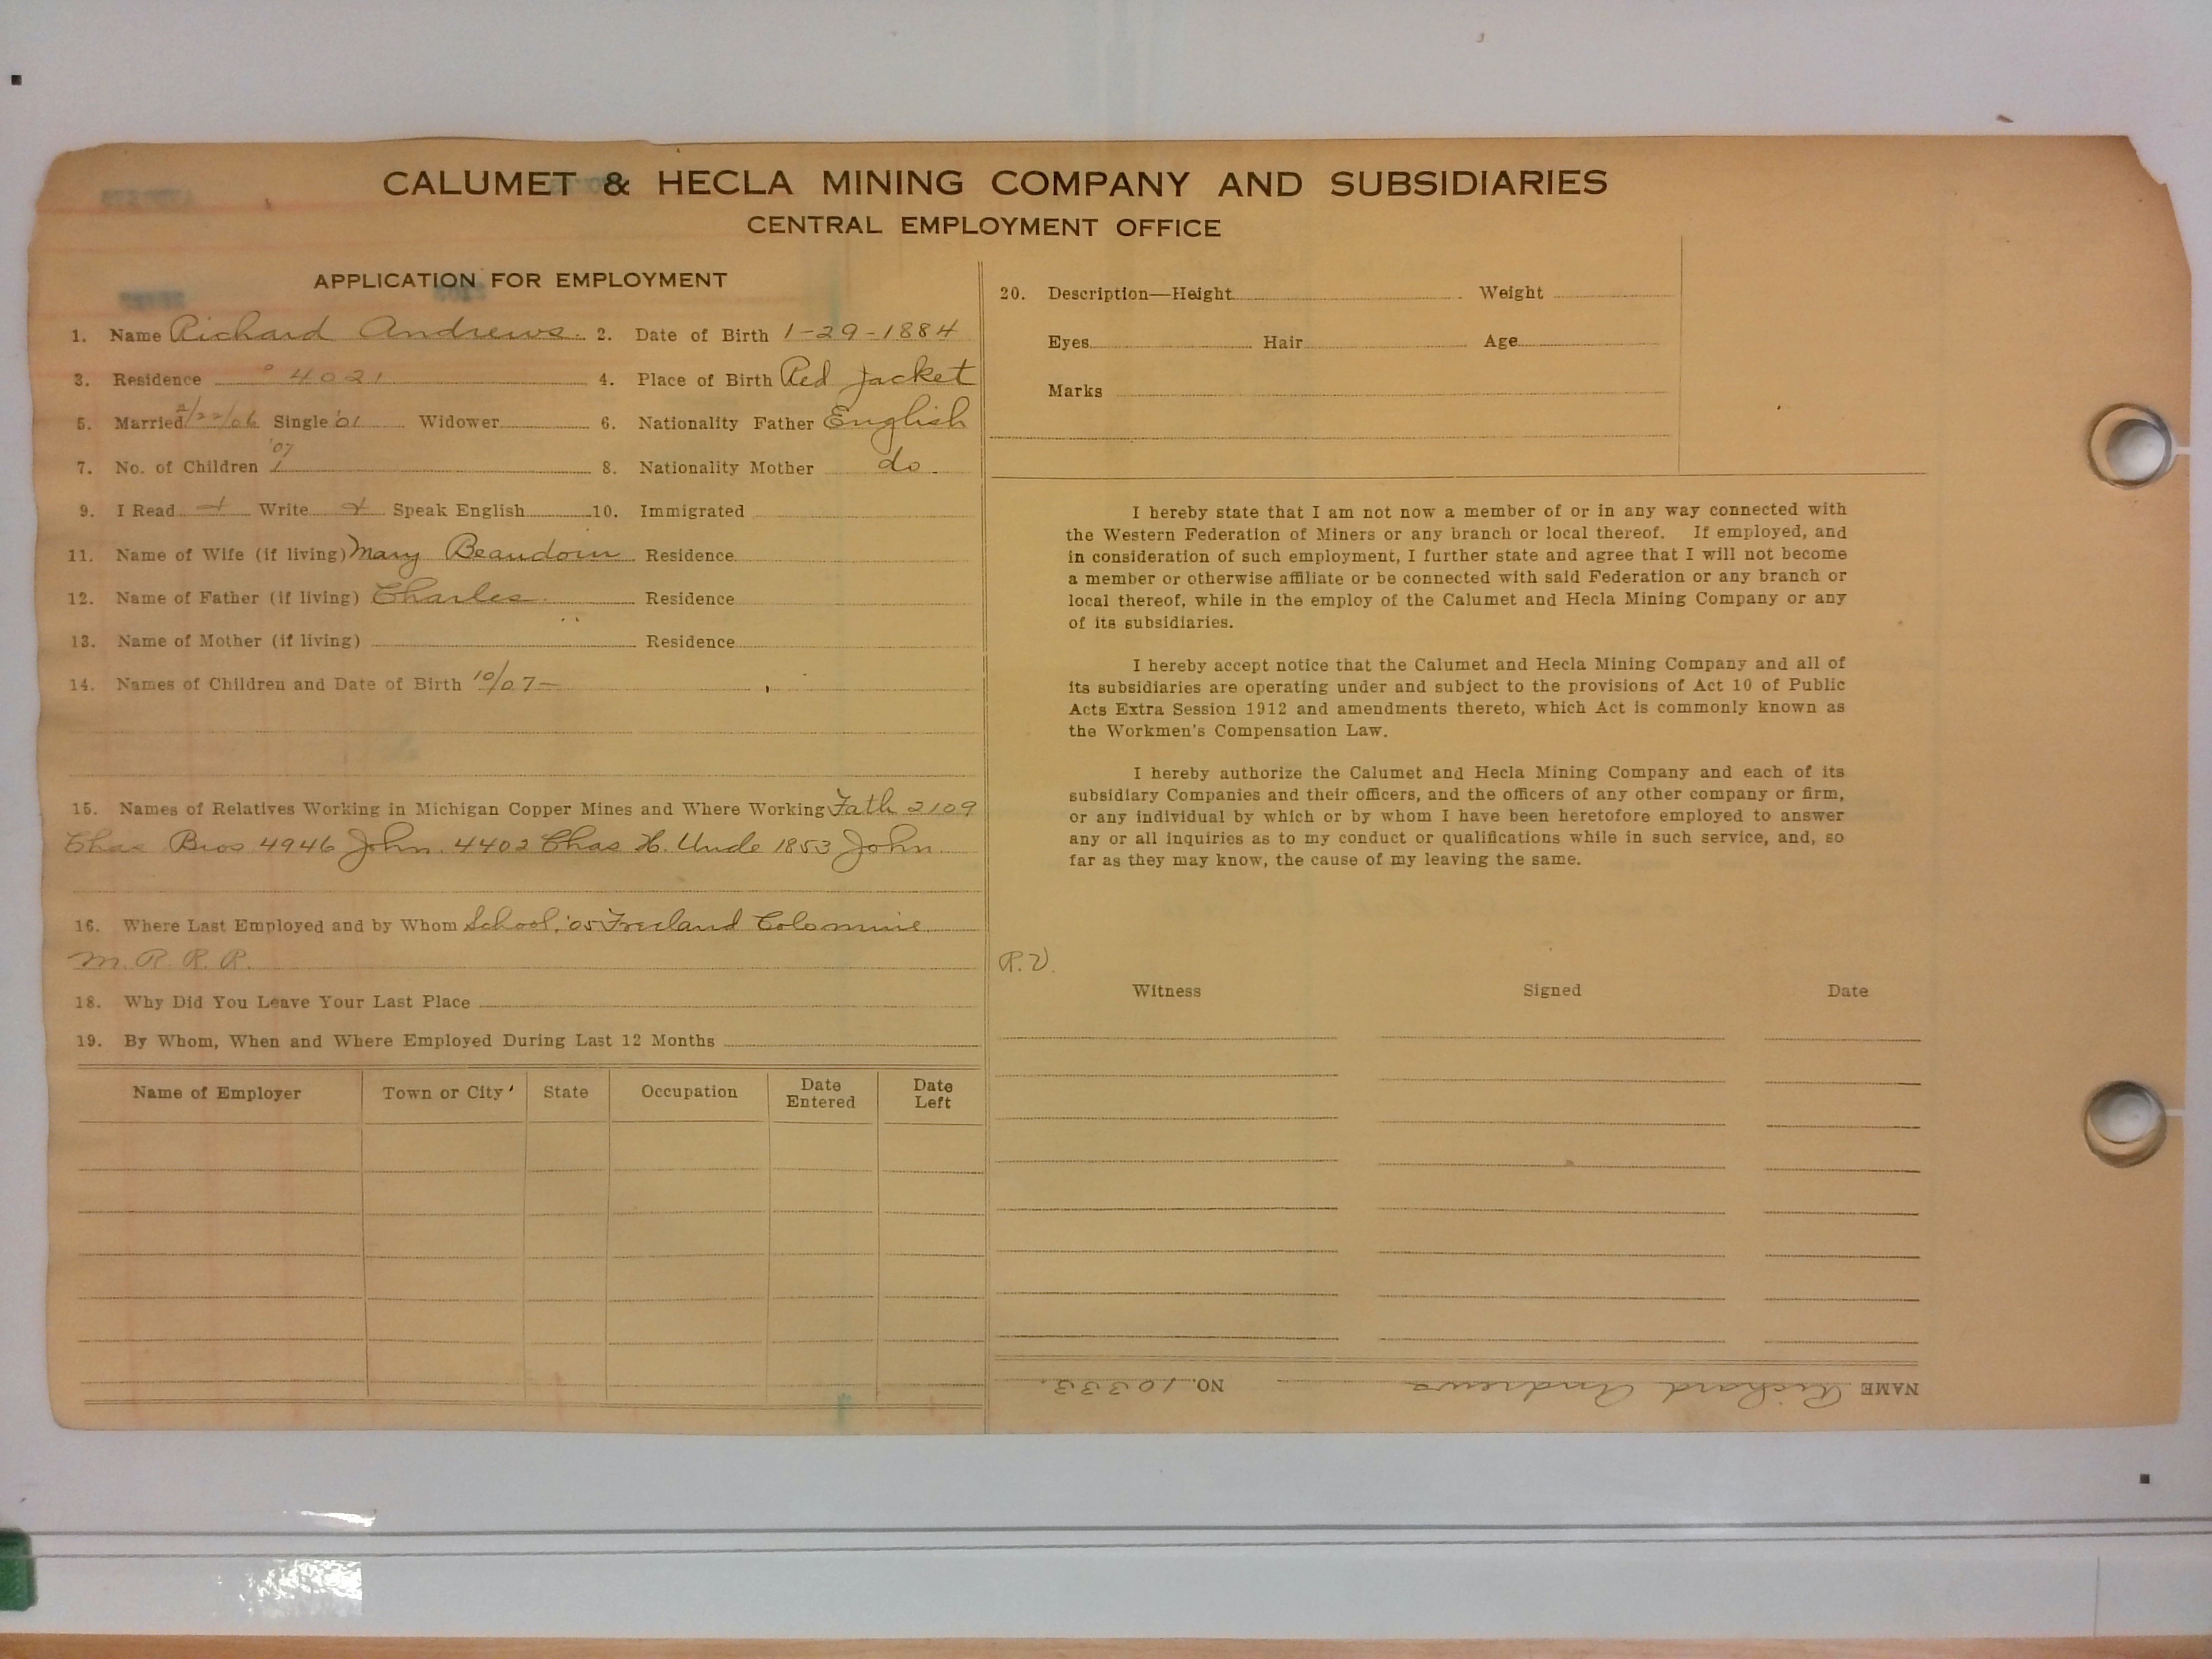 CALUMET & HECLA MINING COMPANY AND SUBSIDIARIES
CENTRAL EMPLOYMENT OFFICE
APPLICATION FOR EMPLOYMENT
1. Name Richard Andrews. 2. Date of Birth 1-29-1884
3. Residence 4021 4. Place of Birth Red Jacket
5. Married 2/22/06 Single '01 Widower 6. Nationality Father English
'07
7. No. of Children 1 8. Nationality Mother do.
9. I Read + Write + Speak English 10. Immigrated
11. Name of Wife (if living) Mary Beaudoin Residence
12. Name of Father (if living) Charles Residence
13. Name of Mother (if living) Residence
14. Names of Children and Date of Birth 10/07-
15. Names of Relatives Working in Michigan Copper Mines and Where Working Fath 2109
Chas Bros 4946 John. 4402 Chas H. Uncle 1853 John.
16. Where Last Employed and by Whom School, '05 Freeland Colo mine
M. R. R. R.
18. Why Did You Leave Your Last Place
19. By Whom, When and Where Employed During Last 12 Months
Name of Employer Town or City State Occupation Date Entered Date Left
20. Description—Height Weight
Eyes Hair Age
Marks
I hereby state that I am not now a member of or in any way connected with
the Western Federation of Miners or any branch or local thereof. If employed, and
in consideration of such employment, I further state and agree that I will not become
a member or otherwise affiliate or be connected with said Federation or any branch or
local thereof, while in the employ of the Calumet and Hecla Mining Company or any
of its subsidiaries.
I hereby accept notice that the Calumet and Hecla Mining Company and all of
its subsidiaries are operating under and subject to the provisions of Act 10 of Public
Acts Extra Session 1912 and amendments thereto, which Act is commonly known as
the Workmen's Compensation Law.
I hereby authorize the Calumet and Hecla Mining Company and each of its
subsidiary Companies and their officers, and the officers of any other company or firm,
or any individual by which or by whom I have been heretofore employed to answer
any or all inquiries as to my conduct or qualifications while in such service, and, so
far as they may know, the cause of my leaving the same.
R.V.
Witness Signed Date
NAME Richard Andrews NO. 10333.